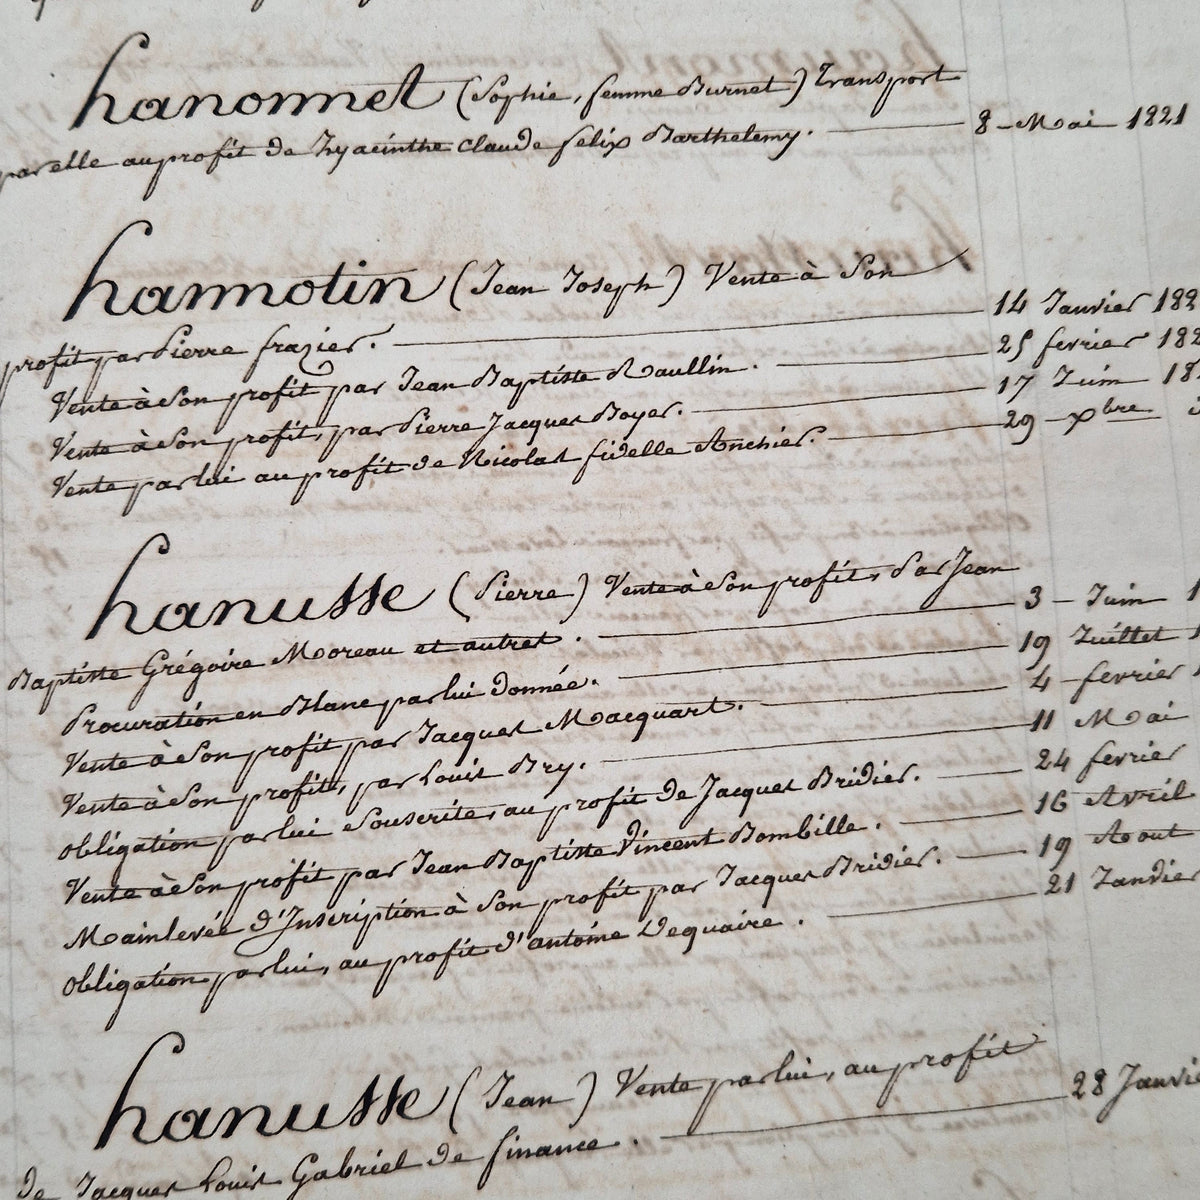 hanonnet (Sophie, femme Burnet) Transport
par elle au profit de hyacinthe claude felix Barthelemy. 8 - Mai 1821
hannotin (Jean Joseph) Vente à Son
profit par Pierre frazier. 14 Janvier 182
Vente à Son profit par Jean Baptiste Raullin. 25 fevrier 182
Vente à Son profit, par Pierre Jacques Boyer. 17 Juin 18
Vente par lui au profit de Nicolas fidelle Anchier. 29 - Xbre
hanusse (Pierre) Vente à Son profit, Par Jean
Baptiste Grégoire Moreau et autres. 3 - Juin 1
Procuration en Blanc par lui donnée. 19 Juillet 1
Vente à Son profit par Jacques Macquart. 4 - fevrier 1
Vente à Son profit, par Louis Bry. 11 Mai
Obligation par lui Souscrite, au profit de Jacques Bridier. 24 fevrier
Vente à Son profit par Jean Baptiste Vincent Bombille. 16 Avril
Mainlevée d'Inscription à Son profit par Jacques Bridier. 19 Aout
Obligation par lui, au profit d'antoine Dequaire. 21 Janvier
hanusse (Jean) Vente par lui, au profit
de Jacques Louis Gabriel de finance. 28 Janvie